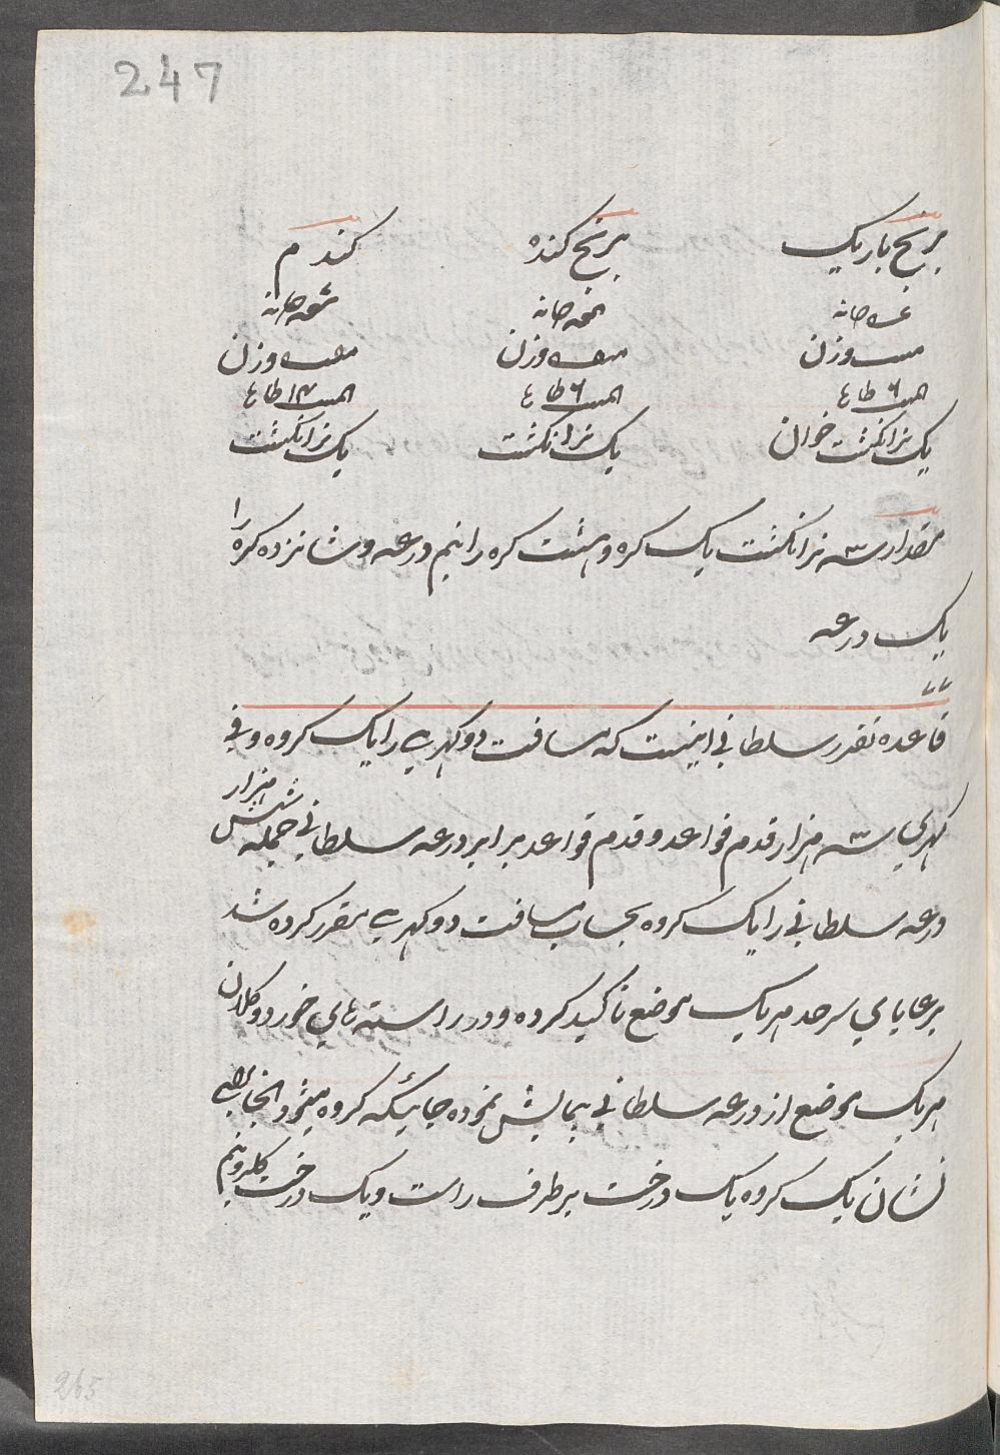 247
برنج باریک برنج کنده کندم
دانه دانه دانه
وزن وزن وزن
یک نرانکشت خوان یک نرانکشت یک نرانکشت
مقدار سه نرانکشت یک کره و هشت کره را نیم درعه و شانزده کره را
یک درعه
قاعده تقدر سلطانی اینست که مسافت دو کهری را یک کروه و فی
کهری سه هزار قدم قواعد و قدم قواعد برابر درعه سلطانی جمله شش هزار
درعه سلطانی را یک کروه بحساب مسافت دو کهری مقرر کرده شد
برعایای سرحد هر یک موضع تاکید کرده و در راسته های خورد و کلان
هر یک موضع از درعه سلطانی پیمایش نموده جائیکه کروه میشود انجا برای
نشان یک کروه یک درخت بر طرف راست و یک درخت
265